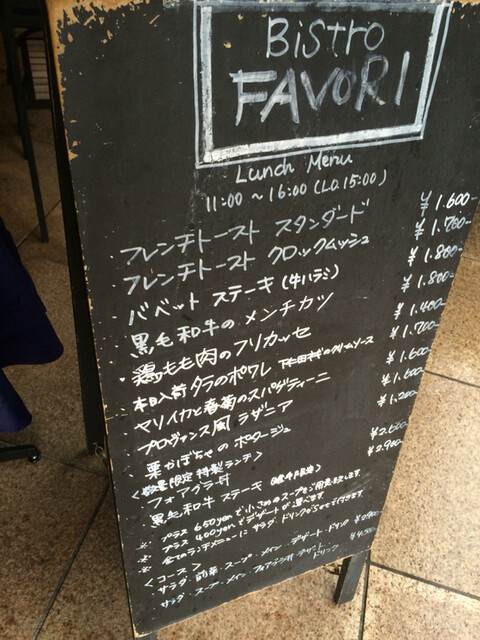 Bistro
FAVORI
Lunch Menu
11:00 ~ 16:00 (L.O.15:00)
フレンチトースト スタンダード ¥1.600-
フレンチトースト クロックムッシュ ¥1.700-
・バベット ステーキ (牛ハラミ) ¥1.800-
・黒毛和牛の メンチカツ ¥1.800-
・鶏もも肉のフリカッセ ¥1.400-
本日入荷 タラのポワレ 下仁田ねぎのクリームソース ¥1.700-
ヤリイカと春菊のスパゲティーニ ¥1.600-
・プロヴァンス風 ラザニア ¥1.600-
・栗かぼちゃの ポタージュ ¥1.200-
〈数量限定 特製ランチ〉
・フォアグラ丼 ¥2.600-
・黒毛和牛 ステーキ ¥2.900-
※ プラス 650yenで小さめのスープをご用意致します。
※ プラス 400yenでデザートが選べます。
※ 全てのランチメニューに サラダ、ドリンクが付きます。
〈コース〉
サラダ・前菜・スープ・メイン・デザート・ドリンク
サラダ・スープ・メイン・フォアグラ丼・デザート・ドリンク